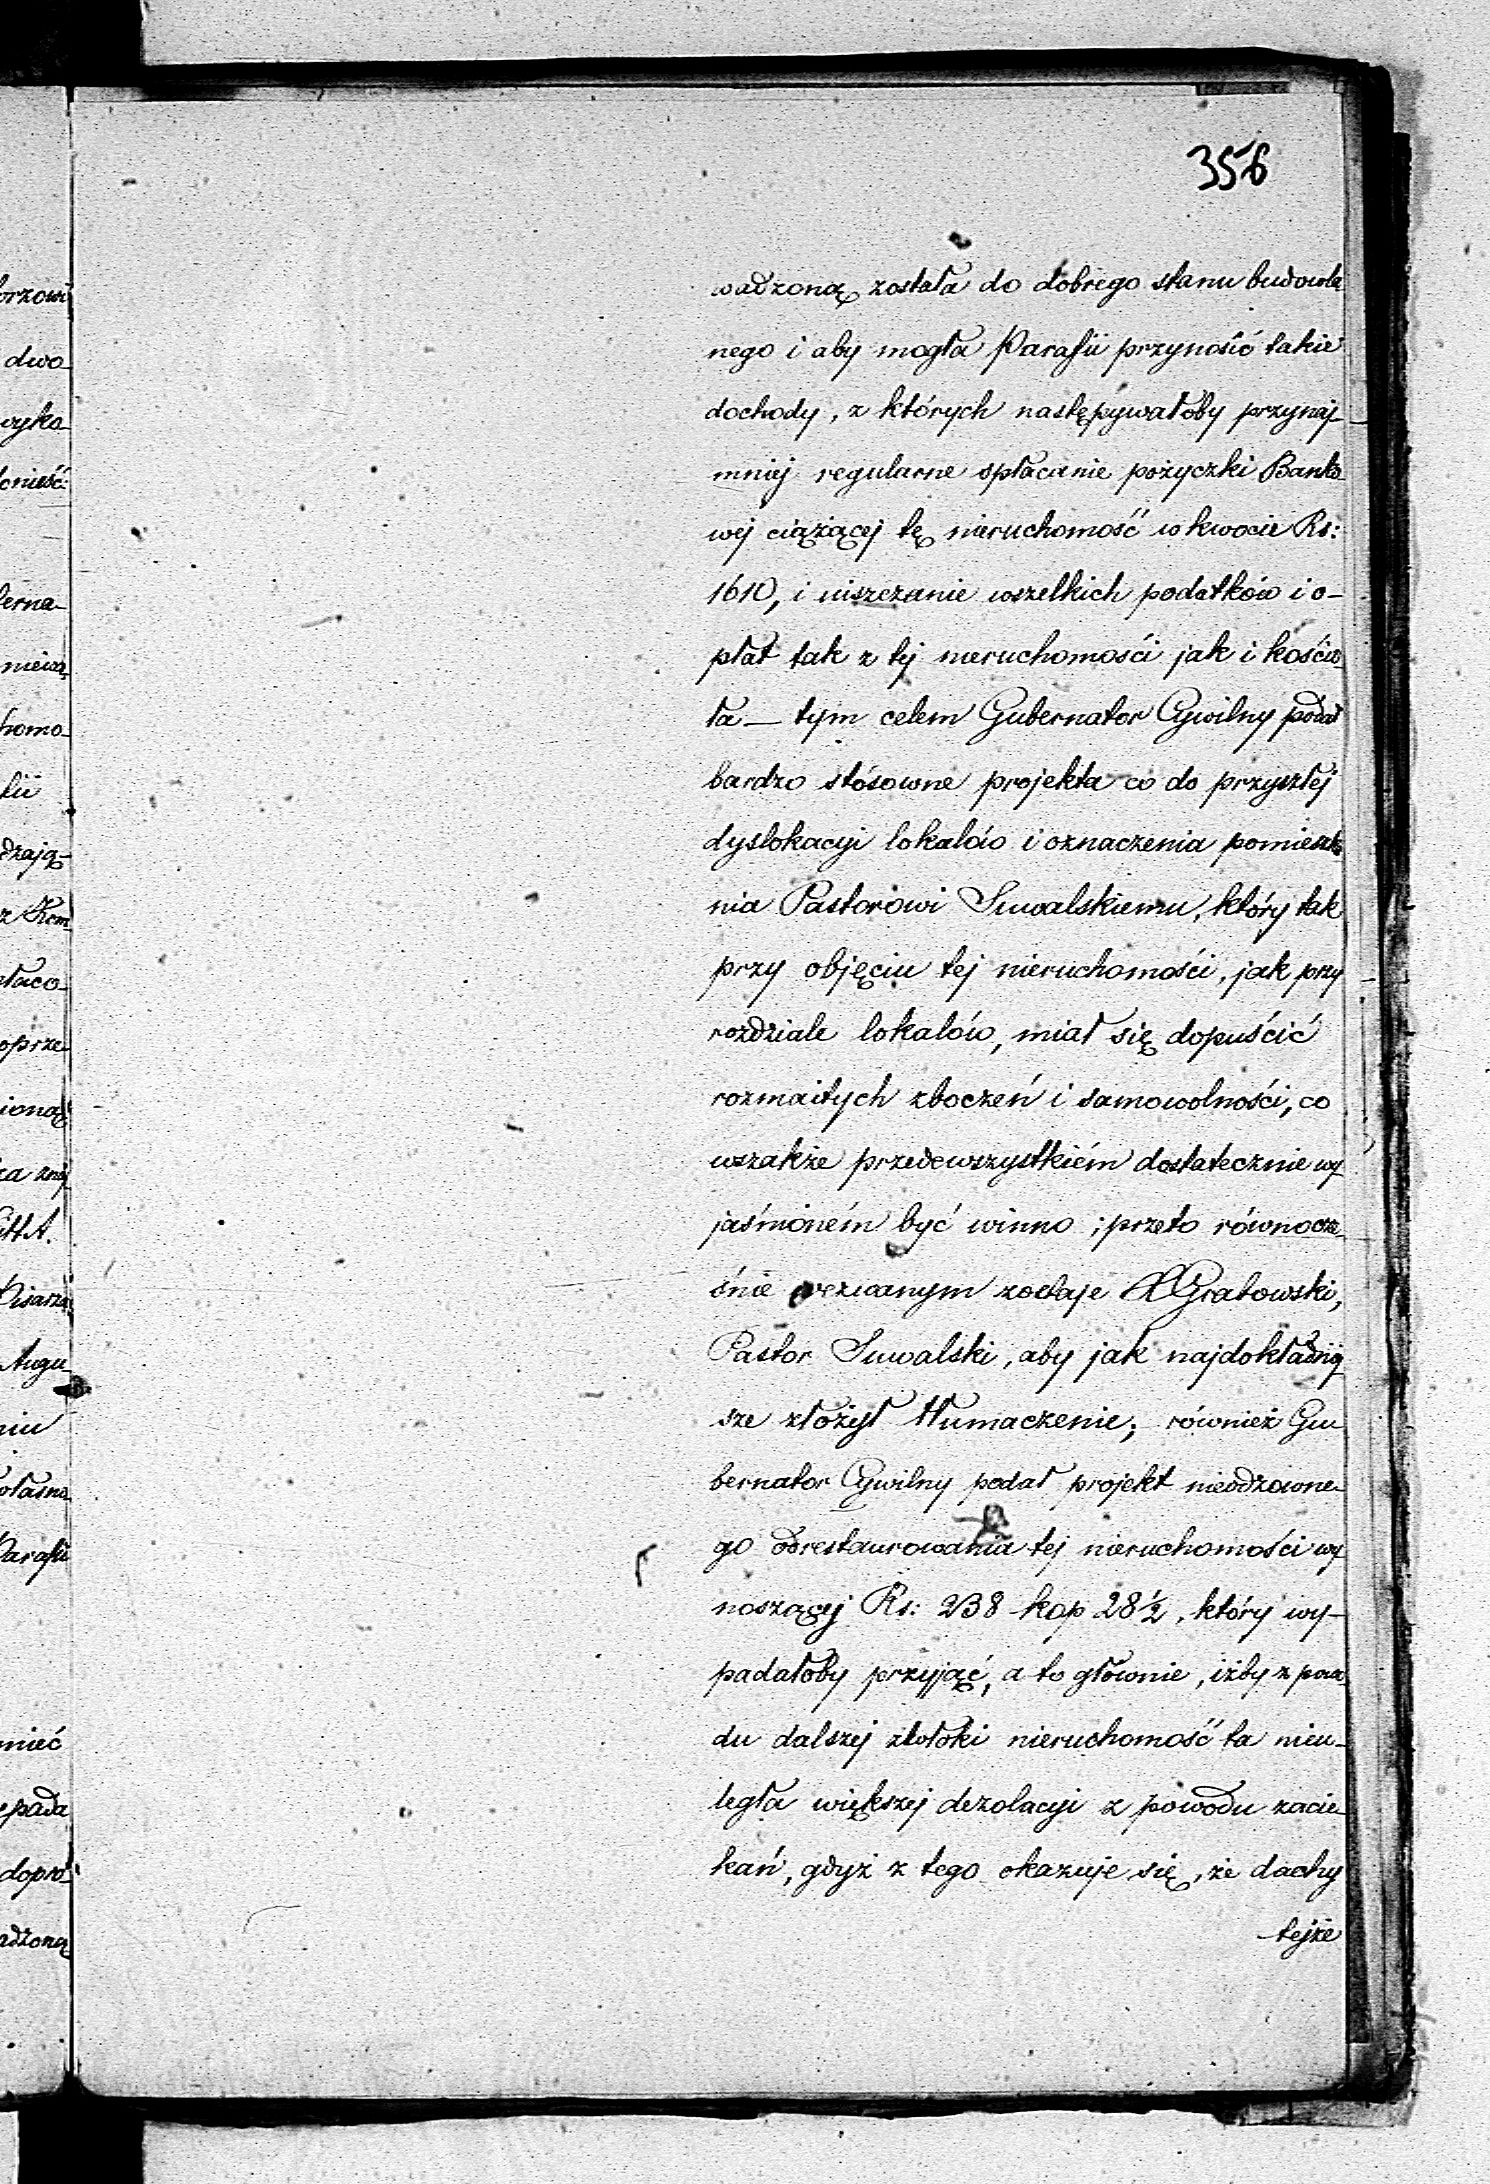 356
wadzoną została do dobrego stanu budowla
nego i aby mogła Parafii przynosić takie
dochody, z których następywałoby przynaj-
mniej regularne spłacanie pożyczki Banko-
wej ciążącej tę nieruchomość w kwocie Rs:
1610, i uiszczanie wszelkich podatków i o-
płat tak z tej nieruchomości jak i kościo-
ła — tym celem Gubernator Cywilny podał
bardzo stósowne projekta co do przyszłej
dyslokacyi lokalów i oznaczenia pomieszka
nia Pastorowi Suwalskiemu, który tak
przy objęciu tej nieruchomości, jak przy
rozdziale lokalów, miał się dopuścić
rozmaitych zboczeń i samowolności, co
wszakże przedewszystkiém dostatecznie wy-
jaśnioném być winno; przeto równocze-
śnie wezwanym zostaje X Grabowski,
Pastor Suwalski, aby jak najdokładniej-
sze złożył tłumaczenie; również Gu
bernator Cywilny podał projekt nieodzowne-
go odrestaurowania tej nieruchomości wy-
noszącej Rs: 238 kop 28½, który wy-
padałoby przyjąć, a to głównie, iżby z powo-
du dalszej zwłoki nieruchomość ta nieu-
legła większej dezolacyi z powodu zacie-
kań, gdyż z tego okazuje się, że dachy
tejże
dwo
nieść:
homo-
dzają-
z Kom
oprze-
Pisarza
Augu-
niu
własne
Parafii
mieć
dopro-
adzoną